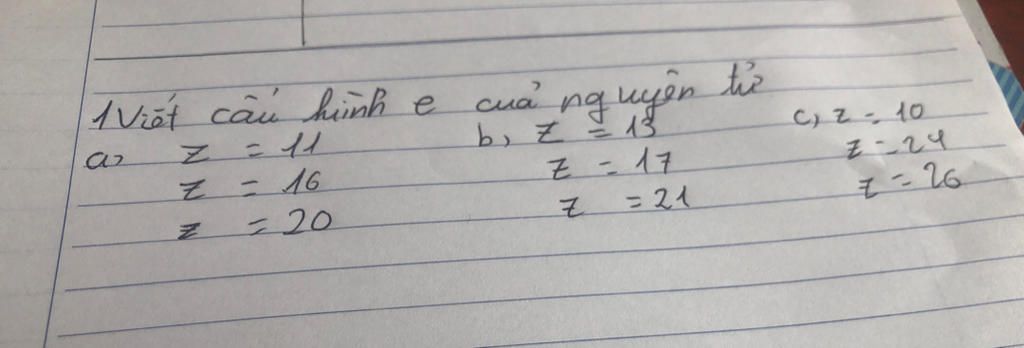 1 Viết cấu hình e cuả nguyên tử
a, Z = 11 b, Z = 13 c, Z = 10
Z = 16 Z = 17 Z = 24
Z = 20 Z = 21 Z = 26